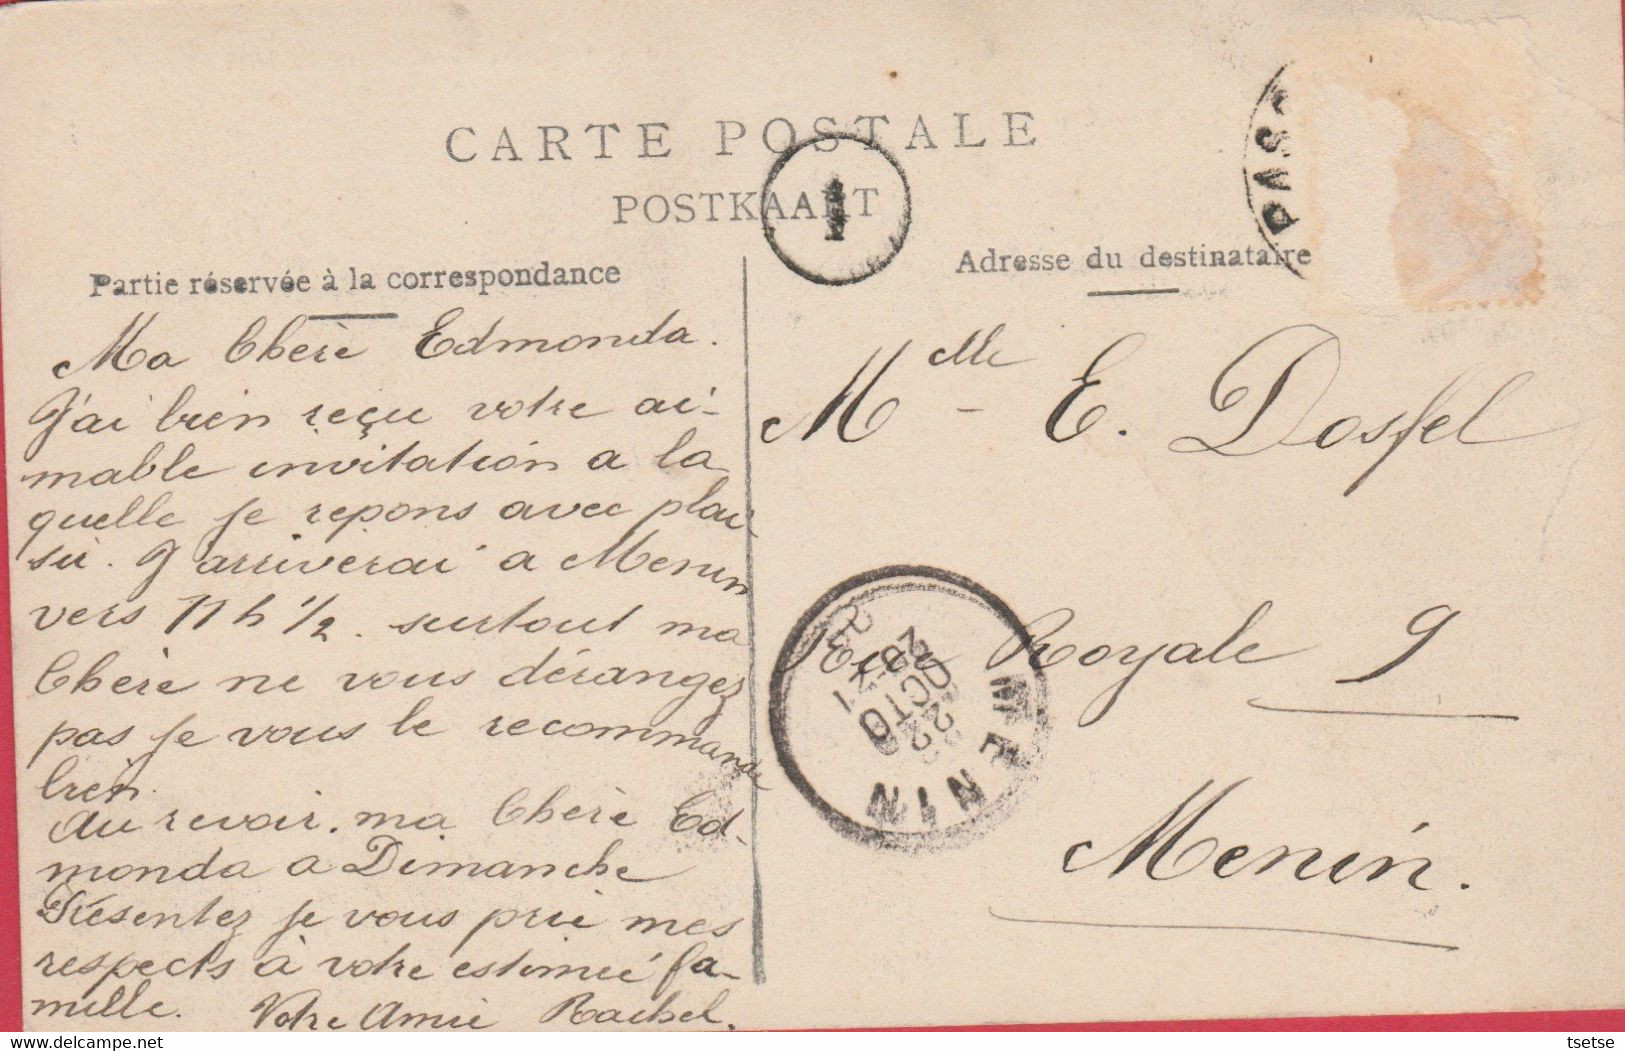 CARTE POSTALE
POSTKAART
1
PAS
Partie réservée à la correspondance
Adresse du destinataire
Ma Chère Edmonda.
J'ai bien reçu votre ai-
mable invitation a la
quelle je repons avec plai
sir. J'arriverai a Menin
vers 11 h 1/2. surtout ma
Chère ne vous dérangez
pas je vous le recommande
bien.
Au revoir. ma Chère Ed-
monda a Dimanche
Présentez je vous prie mes
respects à votre estimeé fa-
mille. Votre Amie Rachel.
Mlle - E. Dosfel
Rue Royale 9
Menin.
MENIN
OCTO
delcampe.net
tsetse